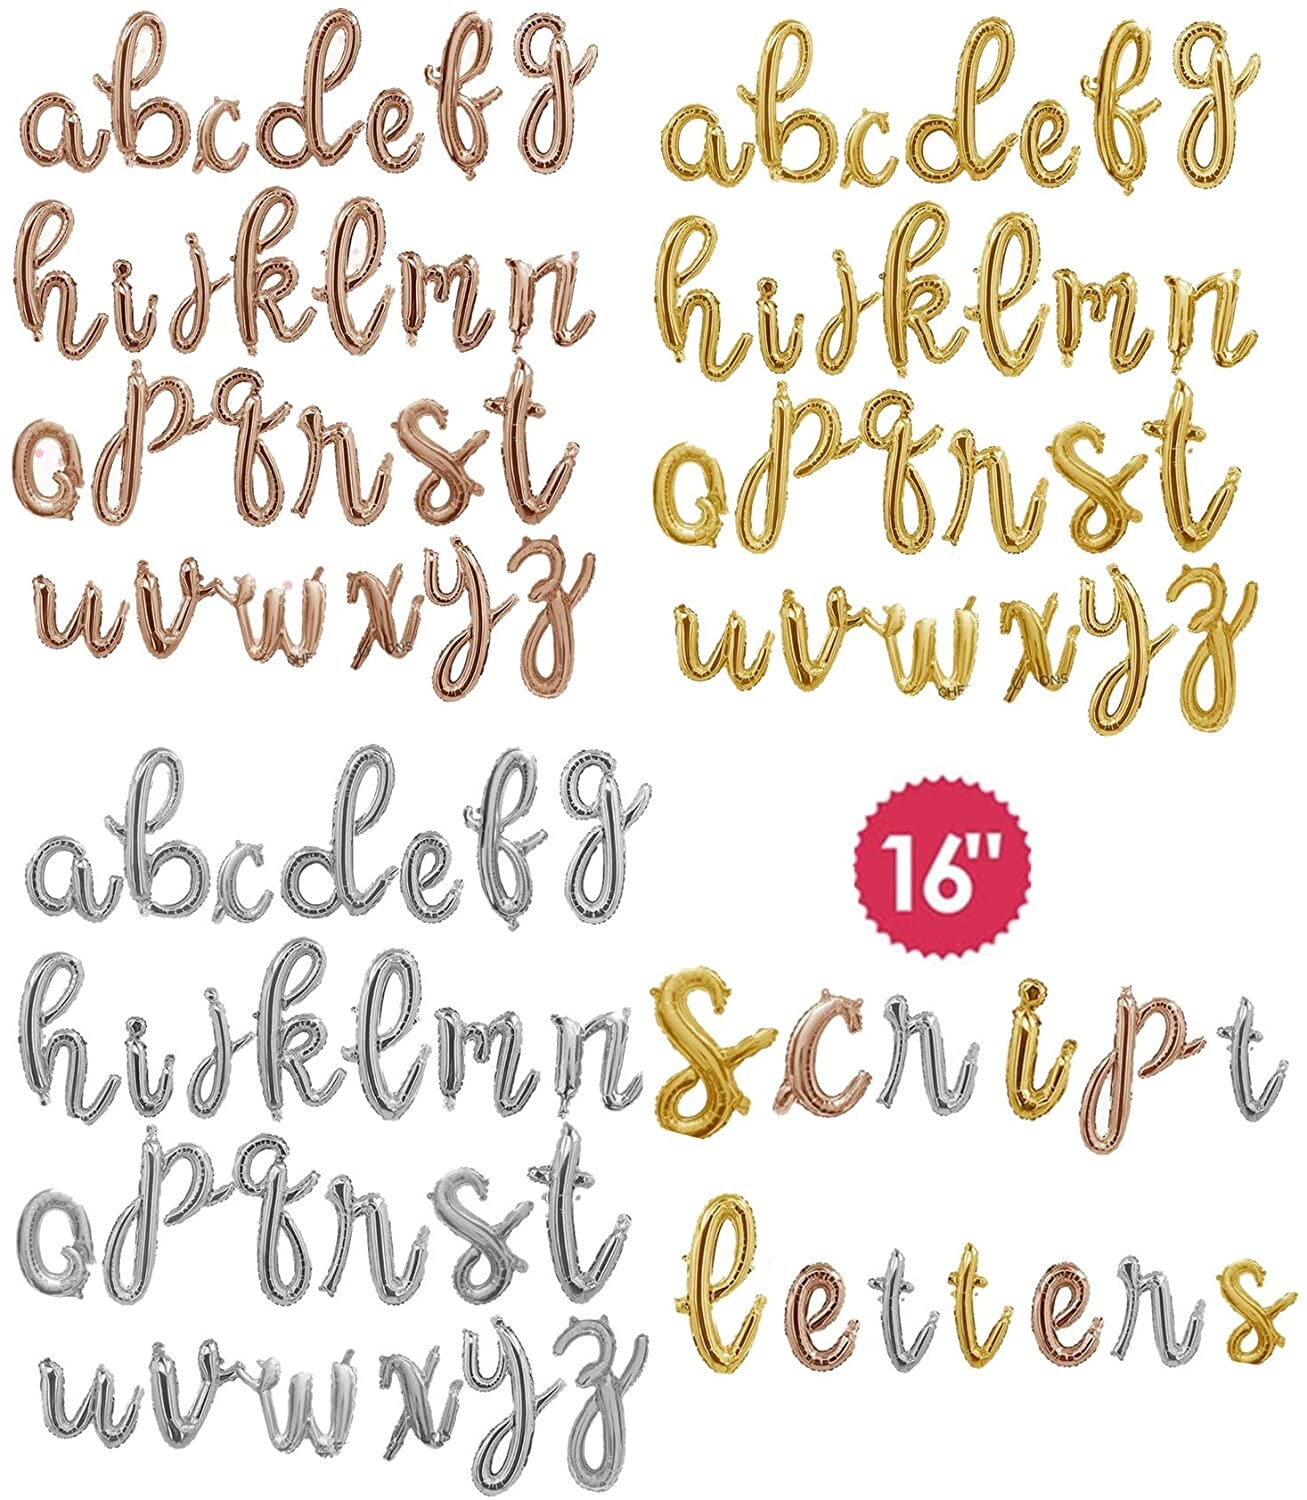 abcdefg
hijklmn
opqrst
uvwxyz
abcdefg
hijklmn
opqrst
uvwxyz
abcdefg
hijklmn
opqrst
uvwxyz
16"
Script
letters